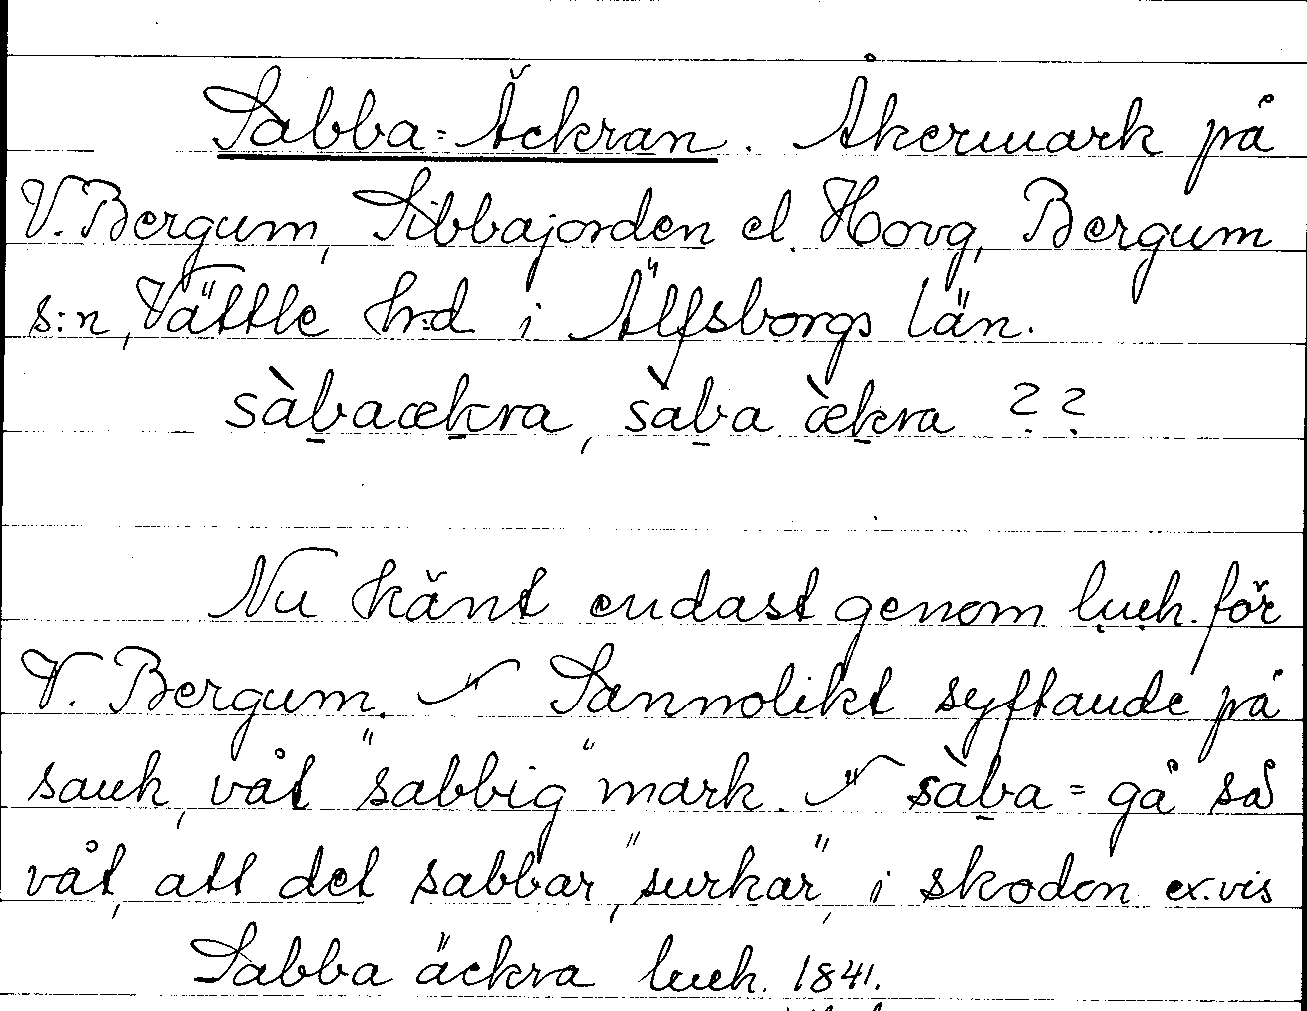 Sabba-Äckran. Åkermark på
V. Bergum, Sibbajorden el. Hovg, Bergum
s:n, Vättle hrd i Älfsborgs län.
sàb̠aæk̠ra, sàb̠a æ̀k̠ra ??
Nu känt endast genom luch. för
V. Bergum. Sannolikt syftande på
sank, våt "sabbig" mark. sàb̠a = gå så
våt, att det sabbar, "surkar", i skodon ex.vis
Sabba äckra luch. 1841.